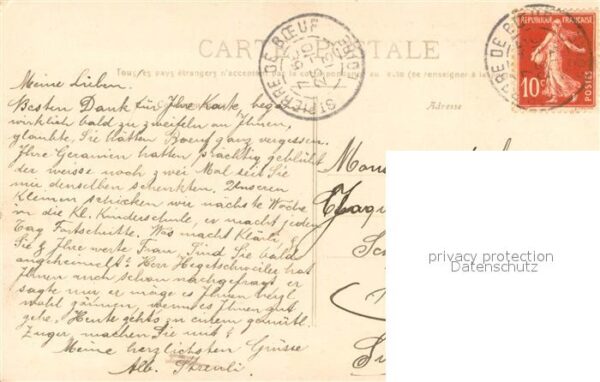 CARTE POSTALE
Tous les pays étrangers n'acceptent pas la correspondance au recto (se renseigner à la
ST PIERRE DE BŒUF
LOIRE
RÉPUBLIQUE FRANÇAISE
10c
POSTES
RE DE BŒUF
Adresse
Meine Lieben.
Besten Dank für Ihre Karte, begann
wirklich bald zu zweifeln an Ihnen,
glaubte, Sie hätten Boeuf ganz vergessen.
Ihre Geranien hatten prächtig geblüht
der weisse noch zwei Mal seit Sie
mir denselben schenkten. Unseren
Kleinen schicken wir nächste Woche
in die Kl. Kinderschule, er macht jeden
Tag Fortschritte. Was macht Klärli,
Sie & Ihre werte Frau, sind Sie bald
angeheimelt? Herr Hegetschweiler hat
Ihnen auch schon nachgefragt er
sagte nur er möge es Ihnen
wohl gönnen, wenn es Ihnen gut
gehe. Heute gehts zu einem gemütl.
machen Sie mit?
Meine herzlichsten Grüsse
Alb.
Mon
Jaq
privacy protection
Datenschutz